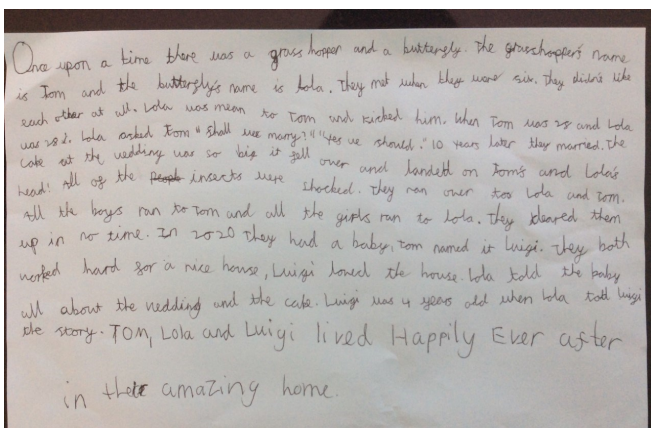 Once upon a time there was a grass hopper and a butterfly. The grasshopper's name
is Tom and the butterfly's name is Lola. They met when they were six. They didn't like
each other at all. Lola was mean to Tom and kicked him. When Tom was 28 and Lola
was 282. Lola asked Tom "Shall we marry?" "Yes we should." 10 years later they married. The
cake at the wedding was so big it fell over and landed on Tom's and Lola's
head! All of the insects were shocked. They ran over too Lola and Tom.
All the boys ran to Tom and all the girls ran to Lola. They cleared them
up in no time. In 2020 They had a baby, Tom named it Luigi. They both
worked hard for a nice house, Luigi loved the house. Lola told the baby
all about the wedding and the cake. Luigi was 4 years old when Lola told luigi
the story. TOM, Lola and Luigi lived Happily Ever after
in their amazing home.